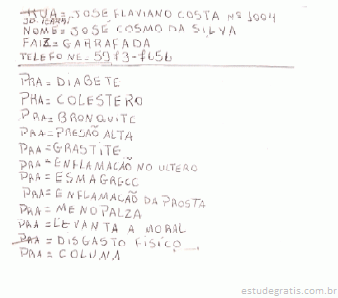 RUA = JOSÉ FLAVIANO COSTA Nº 1004
NOME = JOSÉ COSMO DA SILVA
FAIZ = GARRAFADA
TELEFONE = 5973-7656
PRA = DIABETE
PRA = COLESTERO
PRA = BRONQUITE
PRAA = PRESÃO ALTA
PRAA = GRASTITE
PRA = ENFLAMACÃO NO ULTERO
PRA = ESMAGRECE
PRA = ENFLAMACÃO DA PROSTA
PRA = MENOPALZA
PRA = LEVANTA A MORAL
PRA = DISGASTO FISICO
PRA = COLUNA
estudegratis.com.br